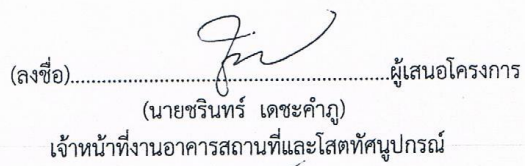 (ลงชื่อ)..........................................................ผู้เสนอโครงการ
(นายชรินทร์ เดชะคำภู)
เจ้าหน้าที่งานอาคารสถานที่และโสตทัศนูปกรณ์